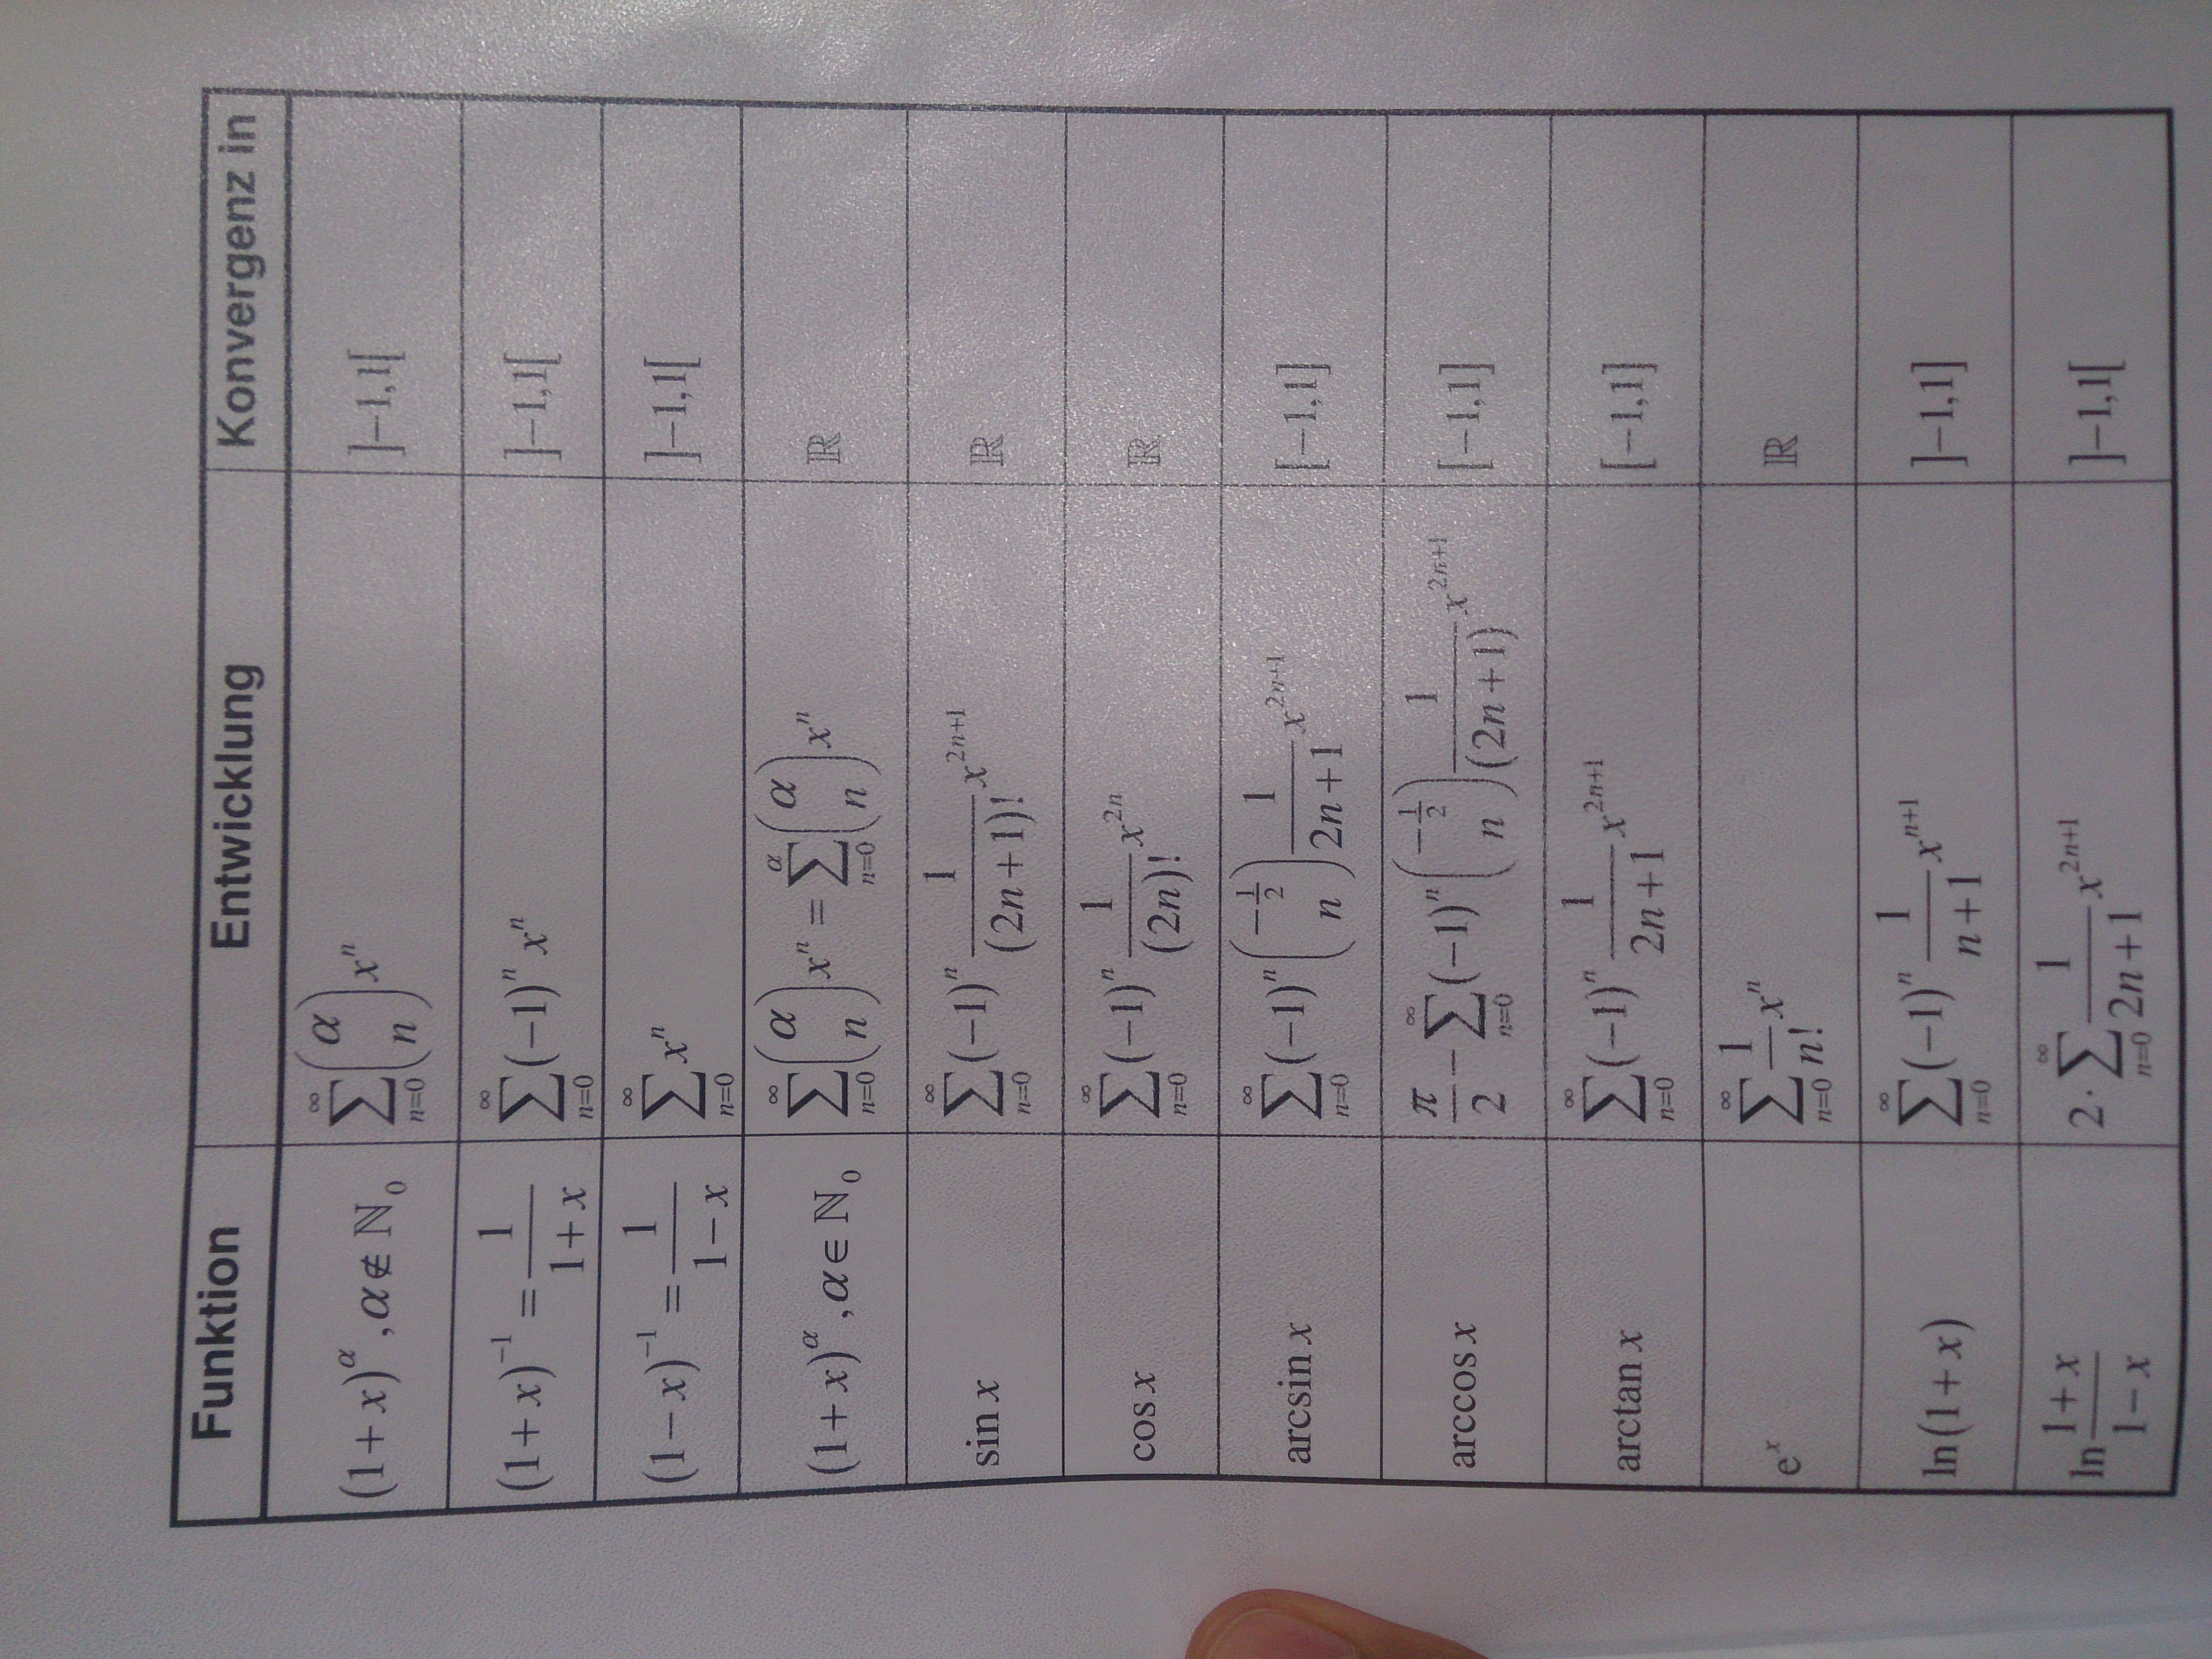 Funktion Entwicklung Konvergenz in
(1+x)^α, α∉ℕ₀ ∑_{n=0}^{∞} \binom{α}{n} x^n ]−1,1[
(1+x)^{−1} = \frac{1}{1+x} ∑_{n=0}^{∞} (−1)^n x^n ]−1,1[
(1−x)^{−1} = \frac{1}{1−x} ∑_{n=0}^{∞} x^n ]−1,1[
(1+x)^α, α∈ℕ₀ ∑_{n=0}^{∞} \binom{α}{n} x^n = ∑_{n=0}^{α} \binom{α}{n} x^n ℝ
sin x ∑_{n=0}^{∞} (−1)^n \frac{1}{(2n+1)!} x^{2n+1} ℝ
cos x ∑_{n=0}^{∞} (−1)^n \frac{1}{(2n)!} x^{2n} ℝ
arcsin x ∑_{n=0}^{∞} (−1)^n \binom{−\frac{1}{2}}{n} \frac{1}{2n+1} x^{2n+1} [−1,1]
arccos x \frac{π}{2} − ∑_{n=0}^{∞} (−1)^n \binom{−\frac{1}{2}}{n} \frac{1}{(2n+1)} x^{2n+1} [−1,1]
arctan x ∑_{n=0}^{∞} (−1)^n \frac{1}{2n+1} x^{2n+1} [−1,1]
e^x ∑_{n=0}^{∞} \frac{1}{n!} x^n ℝ
ln(1+x) ∑_{n=0}^{∞} (−1)^n \frac{1}{n+1} x^{n+1} ]−1,1]
ln \frac{1+x}{1−x} 2·∑_{n=0}^{∞} \frac{1}{2n+1} x^{2n+1} ]−1,1[